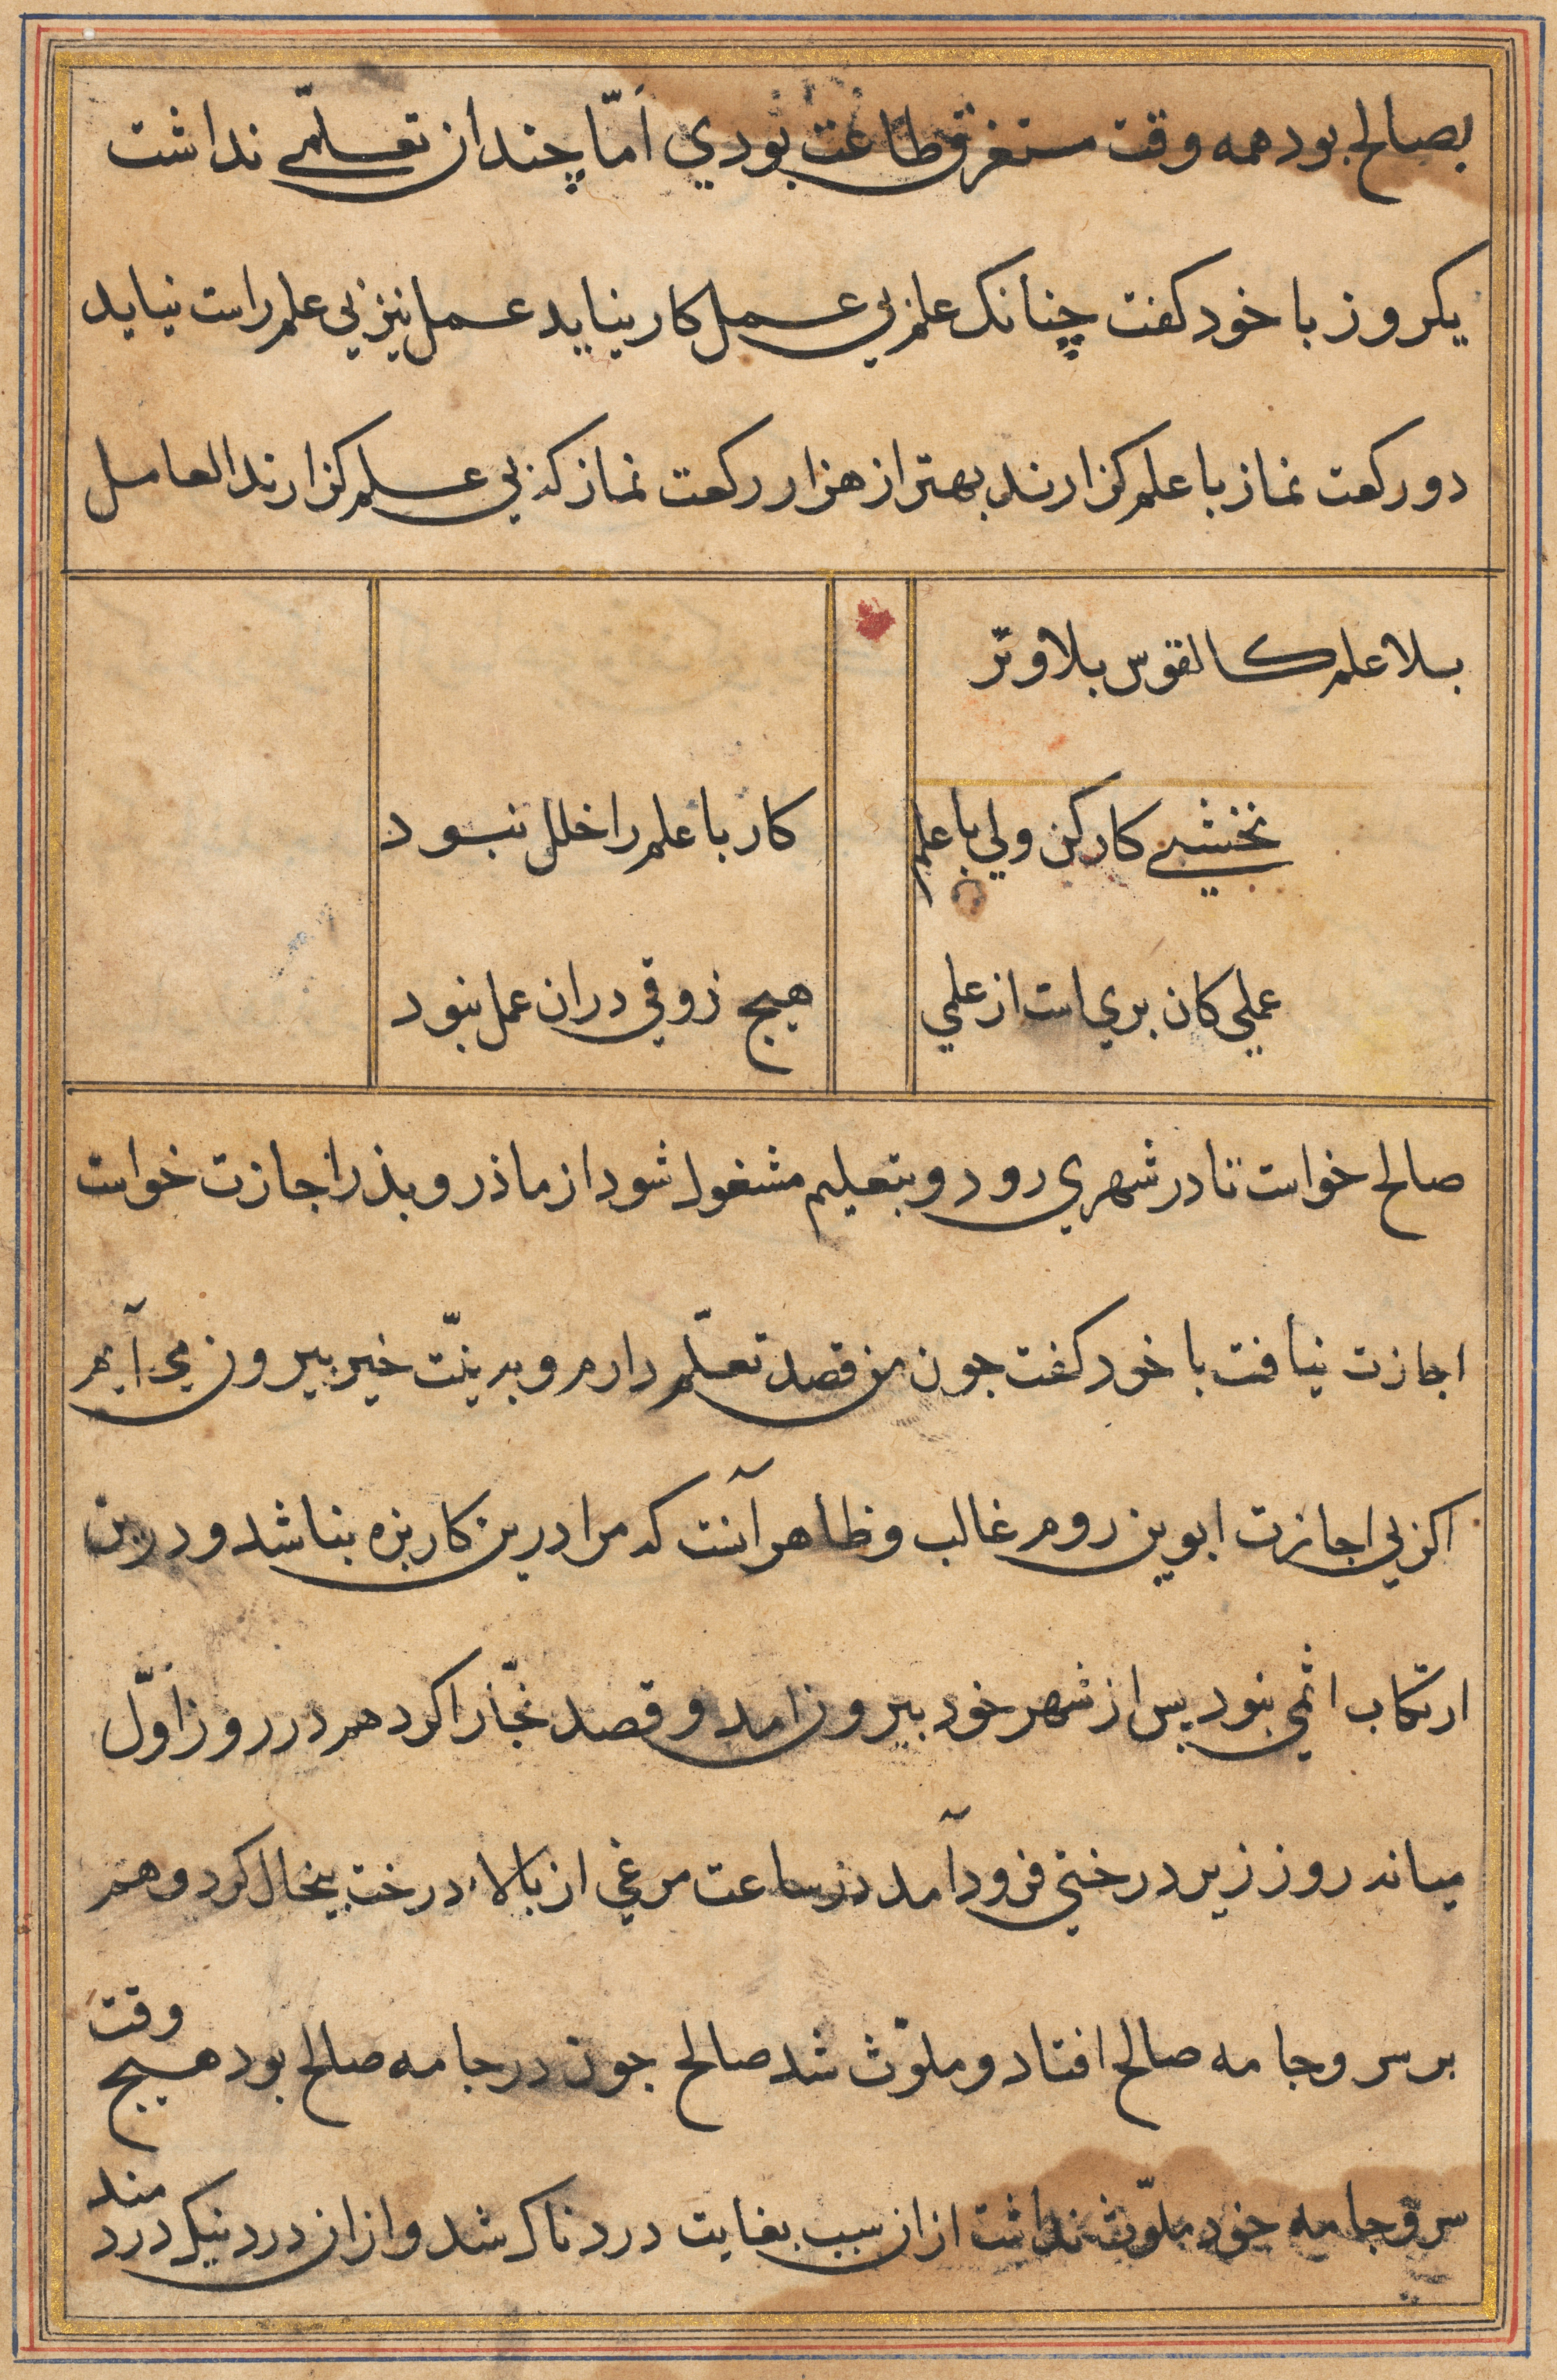 بصالح بود همه وقت مستغرق طاعت بودي امّا چندان تعلمّے نداشت
يكروز با خود كفت چنانك علم بي عمل كار نيايد عمل نيز بي علم راست نيايد
دو ركعت نماز با علم كزارند بهتر از هزار ركعت نماز كه بي علم كزارند العامل
بلا علم كالقوس بلا وتر
نخشبے كار كن ولي با علم
كار با علم را خلل نبود
عملي كان بري است از علمي
هيچ زوقي دران عمل نبود
صالح خواست تا در شهري رود و بتعليم مشغول شود از ماذر و بذر اجازت خواست
اجازت نيافت با خود كفت جون من قصد تعلّم دارم و به نيّت خير بيرون مي آيم
اكر بي اجازت ابوين روم غالب و ظاهر آنست كه مرا درين كار بزه نباشد و درين
ارتكاب اثمي نبود بس از شهر خود بيرون امد و قصد بخارا كرد هم در روز اوّل
ميانه روز زير درختي فرود آمد در ساعت مرغي از بالاء درخت بيخال كرد و هم
بر سر و جامه صالح افتاد و ملوّث شد صالح جون در جامه صالح بود هيج وقت
سر و جامه خود ملوّث نداشت ازان سبب بغايت دردناك شد و ازان درد نيك درد مند